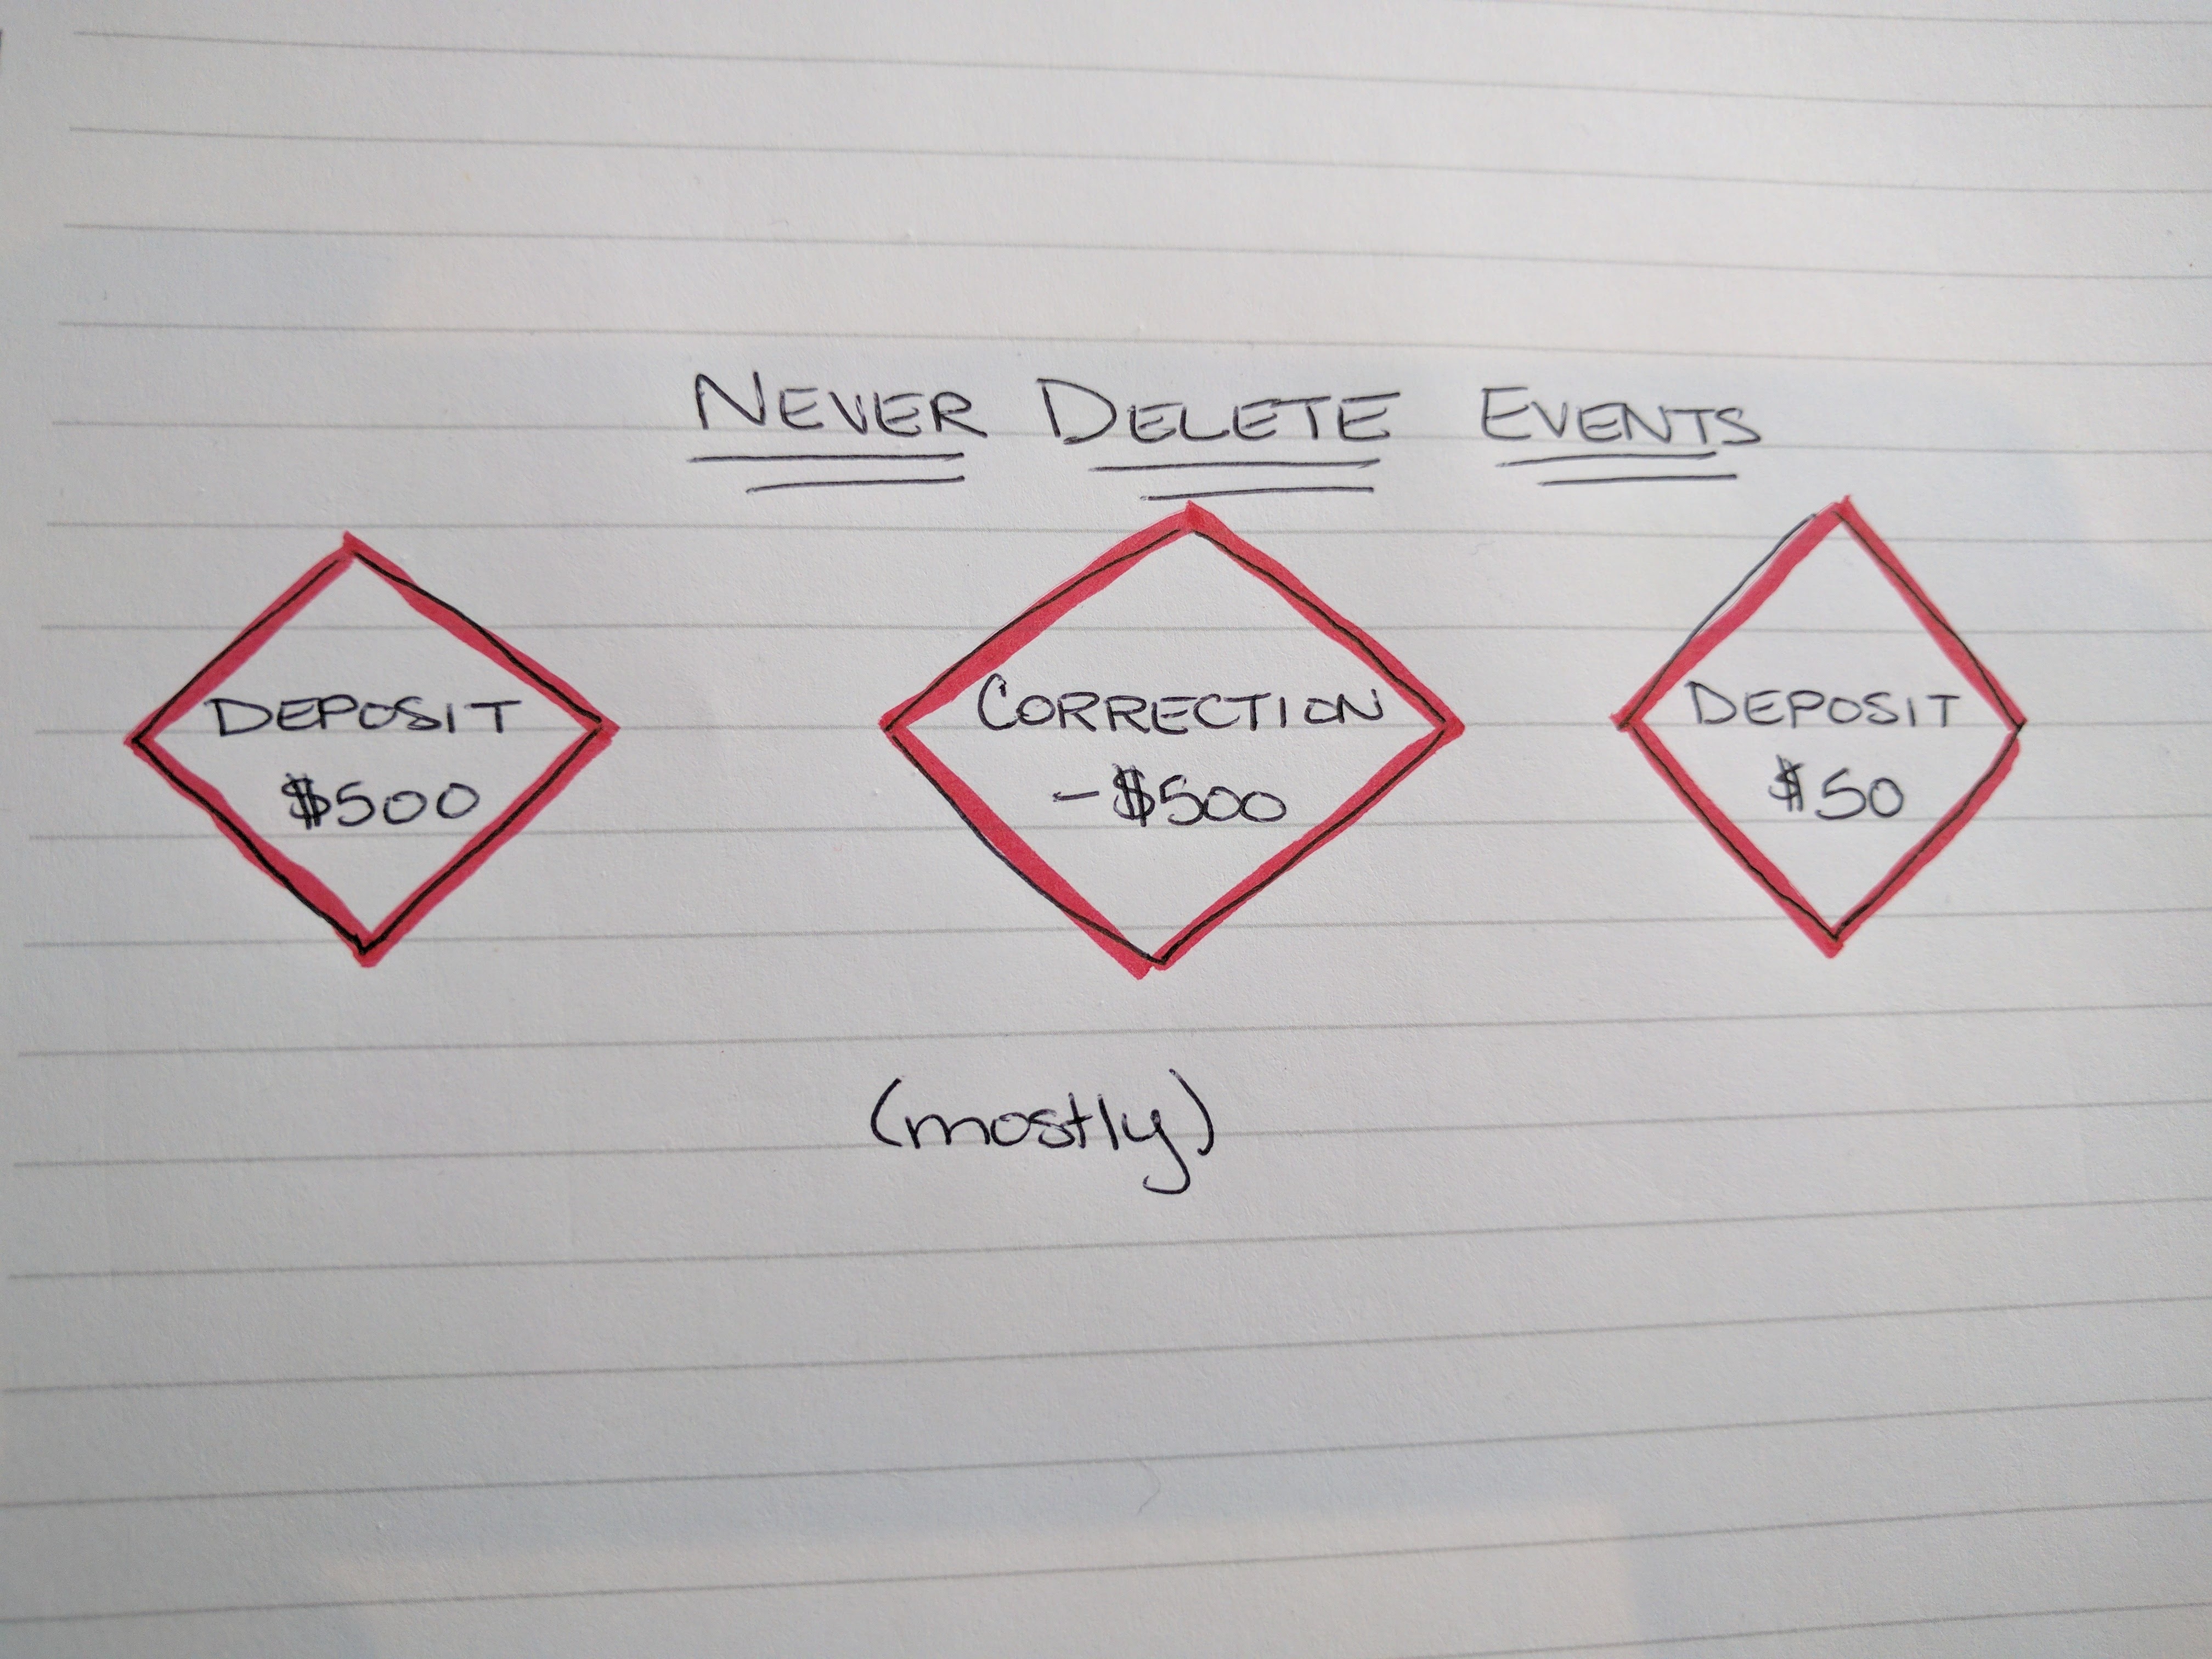 NEVER DELETE EVENTS
DEPOSIT
$500
CORRECTION
-$500
DEPOSIT
$50
(mostly)